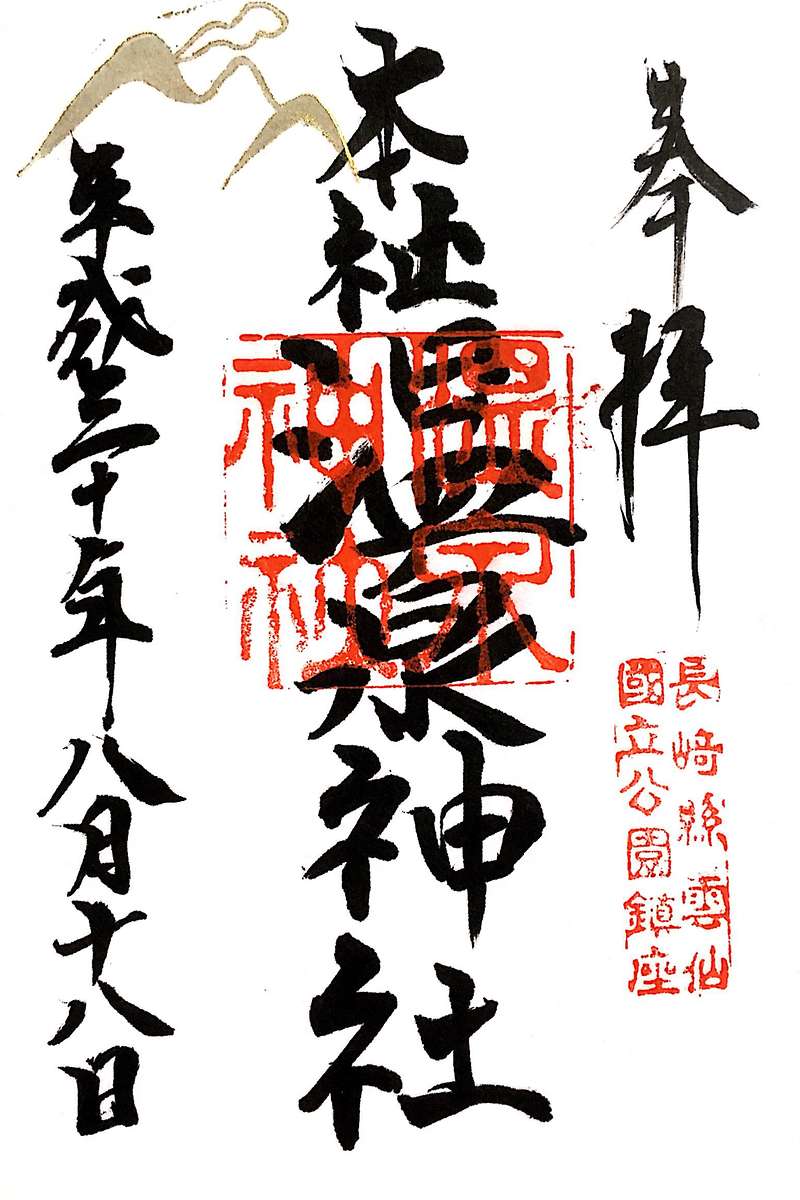 奉拝
長崎縣雲仙
國立公園鎮座
本社温泉神社
温泉
神社
平成三十年八月十八日